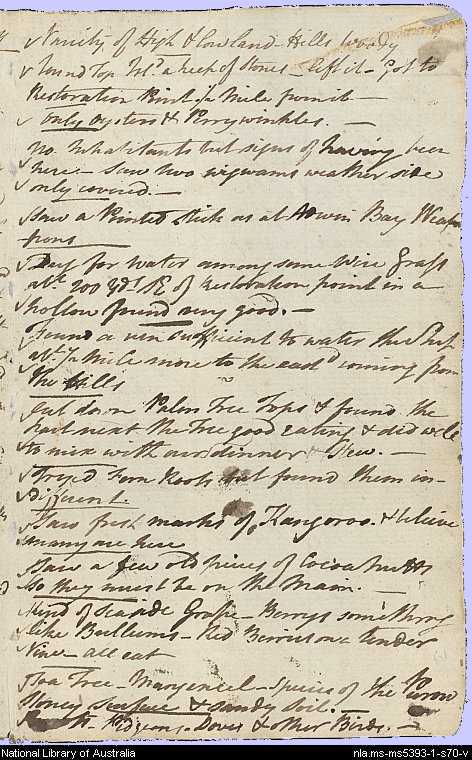 Variety of High & low land Hills woody
round Top Hill a heap of Stones - left it - Got to
Restoration Point ¼ Mile from it -
only oysters & Perrywinkles. -
no Inhabitants but signs of having been
here - Saw two wigwams weather side
only covered. -
Saw a Pointed Stick as at Adven. Bay Weap
pons
Dug for water among some wire Grass
abt. 200 Yds. of Restoration point in a
hollow found very good. -
Found a run sufficient to water the Ship
abt. ½ Mile more to the eastd. coming from
the Hills
Cut down Palm Tree Tops & found the
part next the Tree good eating & did well
to mix with our dinner Stew. -
Tryed Fern Roots but found them in-
different.
Saw fresh marks of Kangoroo. & believe
many are here
Saw a few old pieces of Cocoa Nutts
so they must be on the Main. -
Kind of Seaside Grape - Berrys something
like Bullums - Red Berries on a tender
Vine - all eat
Toa Tree - Manzeneel - Species of the Purow
Stoney Surface & Sandy Soil. -
Pidgeons. Doves & other Birds. -
National Library of Australia
nla.ms-ms5393-1-s70-v